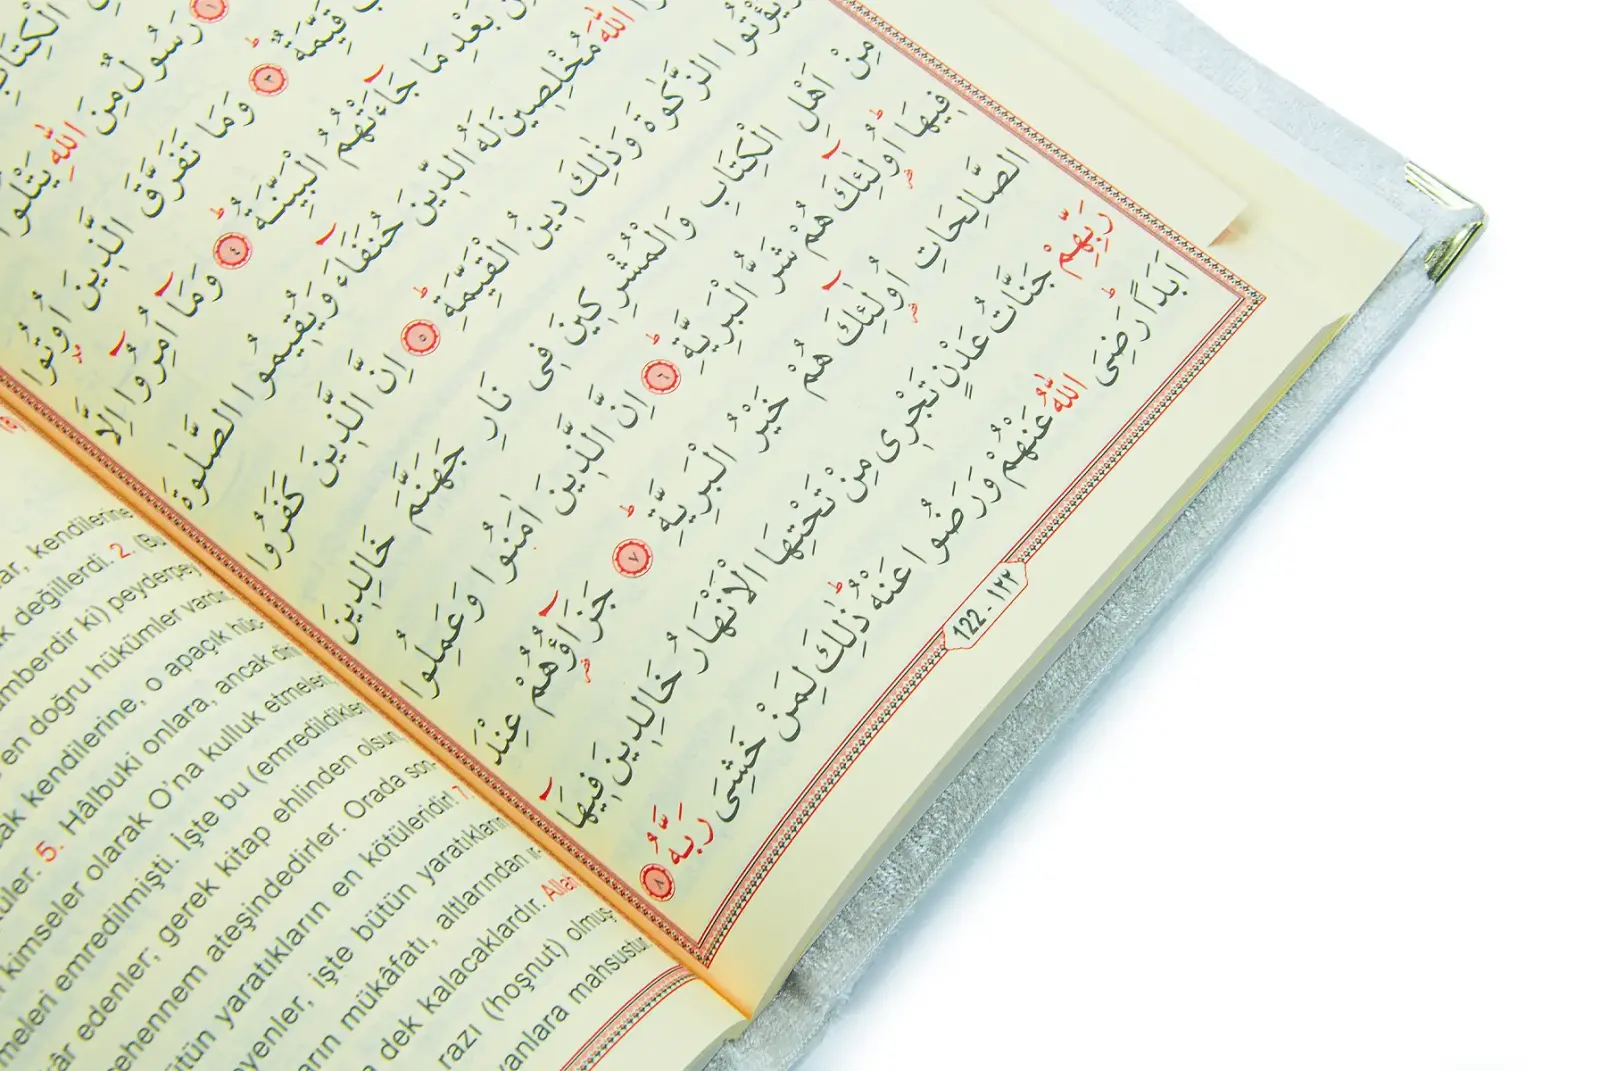 الْكِتَابِ
١ رَسُولٌ مِنَ اللّٰهِ يَتْلُوا
قَيِّمَةٌ ٣ وَمَا تَفَرَّقَ الَّذِينَ اُوتُوا
بَعْدِ مَا جَٓاءَتْهُمُ الْبَيِّنَةُ ٤ وَمَٓا اُمِرُٓوا اِلَّا
اللّٰهَ مُخْلِصِينَ لَهُ الدِّينَ حُنَفَٓاءَ وَيُقِيمُوا الصَّلٰوةَ
وَيُؤْتُوا الزَّكٰوةَ وَذٰلِكَ دِينُ الْقَيِّمَةِ ٥ اِنَّ الَّذِينَ كَفَرُوا
مِنْ اَهْلِ الْكِتَابِ وَالْمُشْرِكِينَ فِى نَارِ جَهَنَّمَ خَالِدِينَ
فِيهَا اُولٰٓئِكَ هُمْ شَرُّ الْبَرِيَّةِ ٦ اِنَّ الَّذِينَ اٰمَنُوا وَعَمِلُوا
الصَّالِحَاتِ اُولٰٓئِكَ هُمْ خَيْرُ الْبَرِيَّةِ ٧ جَزَٓاؤُهُمْ عِنْدَ
رَبِّهِمْ جَنَّاتُ عَدْنٍ تَجْرِى مِنْ تَحْتِهَا الْاَنْهَارُ خَالِدِينَ فِيهَٓا
اَبَدًا رَضِىَ اللّٰهُ عَنْهُمْ وَرَضُوا عَنْهُ ذٰلِكَ لِمَنْ خَشِىَ رَبَّهُ ٨
122 - ١٢٢
kendilerine
değillerdi. 2.
ki) peyderpey
en doğru hükümler
kendilerine, o apaçık
5. Hâlbuki onlara, ancak
kimseler olarak O'na kulluk etmeleri,
emredilmişti. İşte bu (emredildikleri
edenler, gerek kitap ehlinden olsun,
cehennem ateşindedirler. Orada
bütün yaratıkların en kötüleridir! 7.
işte bütün yaratıkların
mükâfatı, altlarından
dek kalacaklardır. Allah
razı (hoşnut) olmuş
mahsustur.